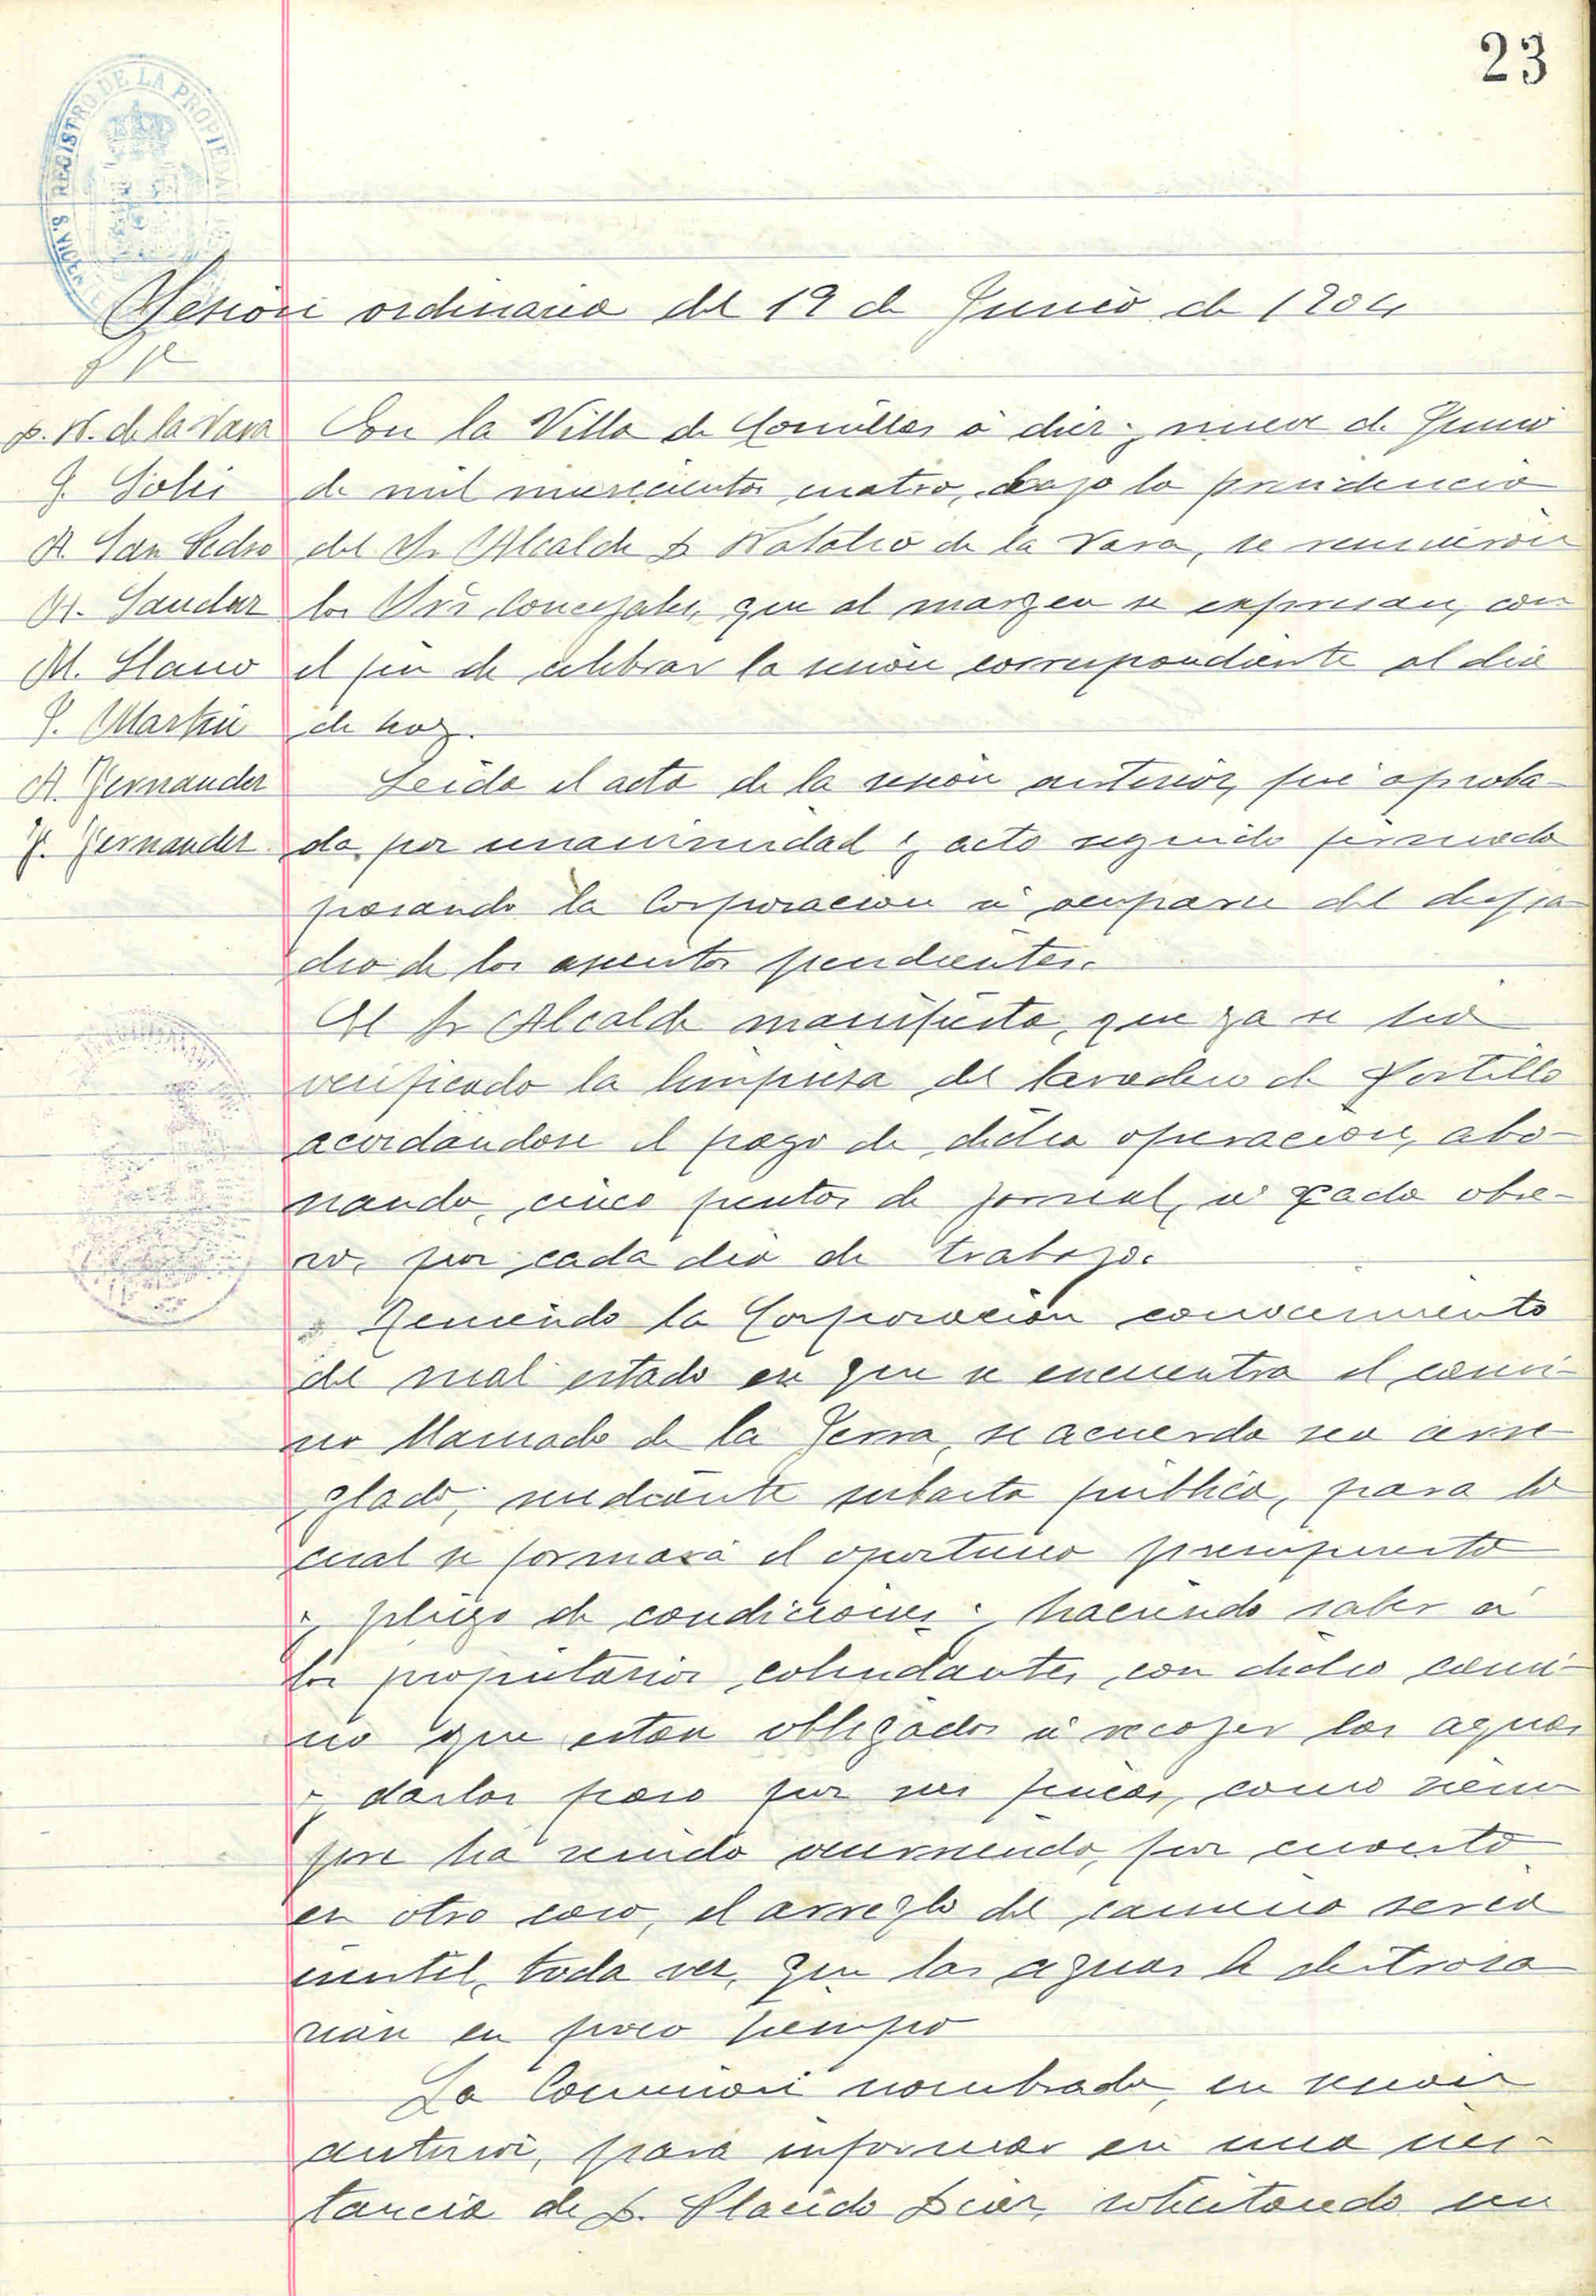 23
REGISTRO DE LA PROPIEDAD
S. VICEN
Sesión ordinaria del 19 de Junio de 1904
D. N. de la Vara
J. Solis
A. San Pedro
A. Sanchez
M. Llano
P. Martin
A. Fernandez
F. Fernandez
En la Villa de Comillas á diez y nueve de Junio
de mil novecientos cuatro, bajo la presidencia
del Sr Alcalde D Natalio de la Vara, se reunieron
los Srs Concejales, que al margen se expresan, con
el fin de celebrar la sesión correspondiente al dia
de hoy.
Leida el acta de la sesión anterior, fué aproba-
da por unanimidad y acto seguido firmada
pasando la Corporacion á ocuparse del despa
cho de los asuntos pendientes.
El Sr Alcalde manifiesta, que ya se ha
verificado la limpieza del lavadero de Portillo
acordándose el pago de dicha operación, abo-
nando, cinco pesetas de jornal, á cada obre-
ro, por cada dia de trabajo.
Teniendo la Corporación conocimiento
del mal estado en que se encuentra el cami-
no llamado de la Jerra, se acuerda sea arre
glado, mediante subasta pública, para lo
cual se formará el oportuno presupuesto
y pliego de condiciones y haciendo saber á
los propietarios colindantes, con dicho cami-
no que estan obligados á recoger las aguas
y darlas paso por sus fincas, como siem
pre ha venido ocurriendo, por cuanto
en otro caso, el arreglo del camino seria
inutil, toda vez, que las aguas le destroza
rian en poco tiempo
La Comisión nombrada, en sesión
anterior, para informar en una ins-
tancia de D. Placido Diaz, solicitando un